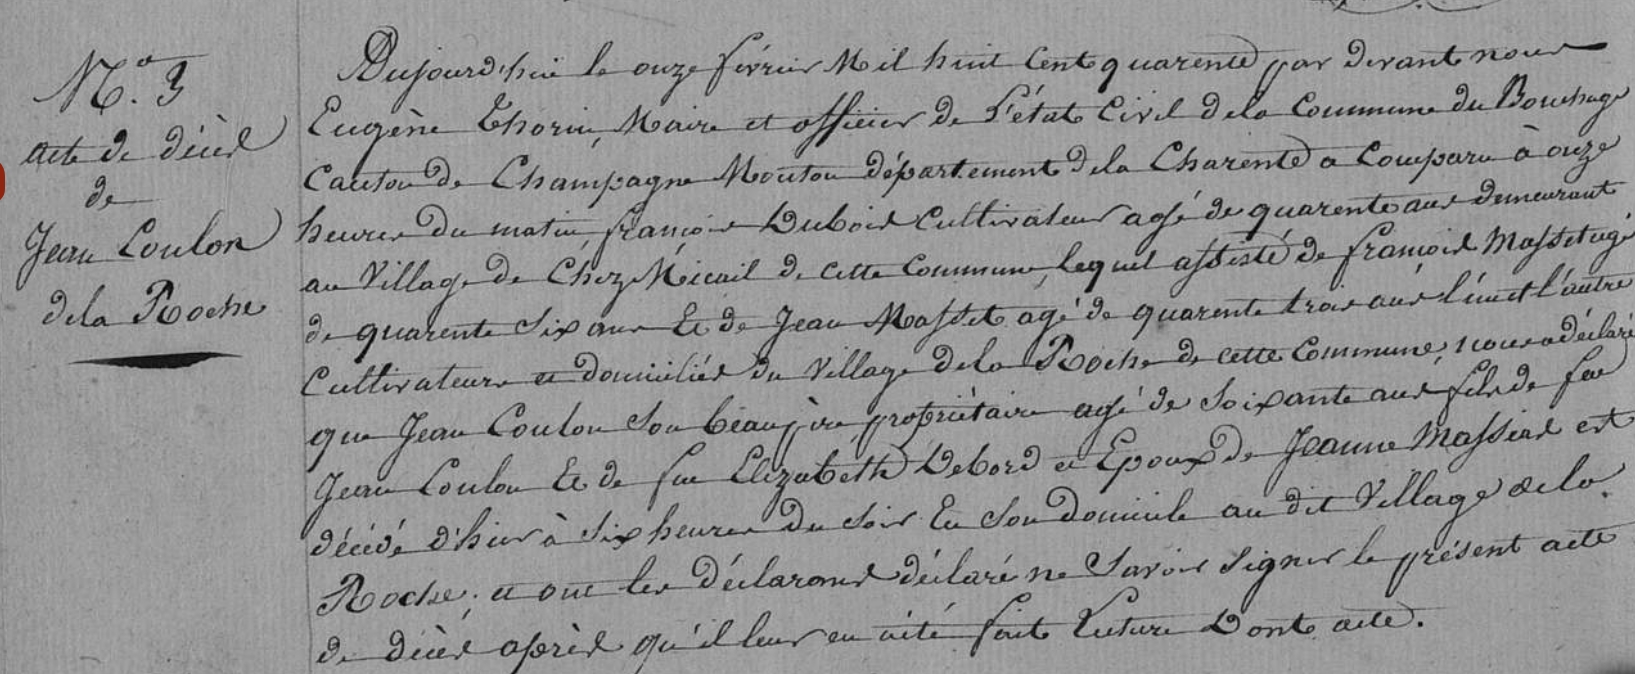 N.o 3
acte de décès
de
Jean Coulon
de la Roche
Aujourd'hui le onze février Mil huit Cent quarente par devant nous
Eugène Thorin, Maire et officier de L'état Civil de la Commune du Bouchage
Canton de Champagne Mouton département de la Charente a Comparu à onze
heures du matin, françois Dubois Cultivateur agé de quarente ans demeurant
au Village de Chez Micail de cette Commune, lequel assisté de françois Masset agé
de quarente Six ans Et de Jean Masset agé de quarente trois ans l'un et l'autre
Cultivateurs et domiciliés du Village de la Roche de cette Commune, nous a déclaré
que Jean Coulon Son beaupère propriétaire agé de Soixante ans fils de feu
Jean Coulon Et de feu Elizabeth Debord et Epoux de Jeanne Massias est
décédé d'hier à Six heures du Soir En Son domicile au dit Village de la
Roche; et ont les déclarans déclaré ne Savoir Signer le présent acte
de décès après qu'il leur en a été fait Lecture Dont acte.